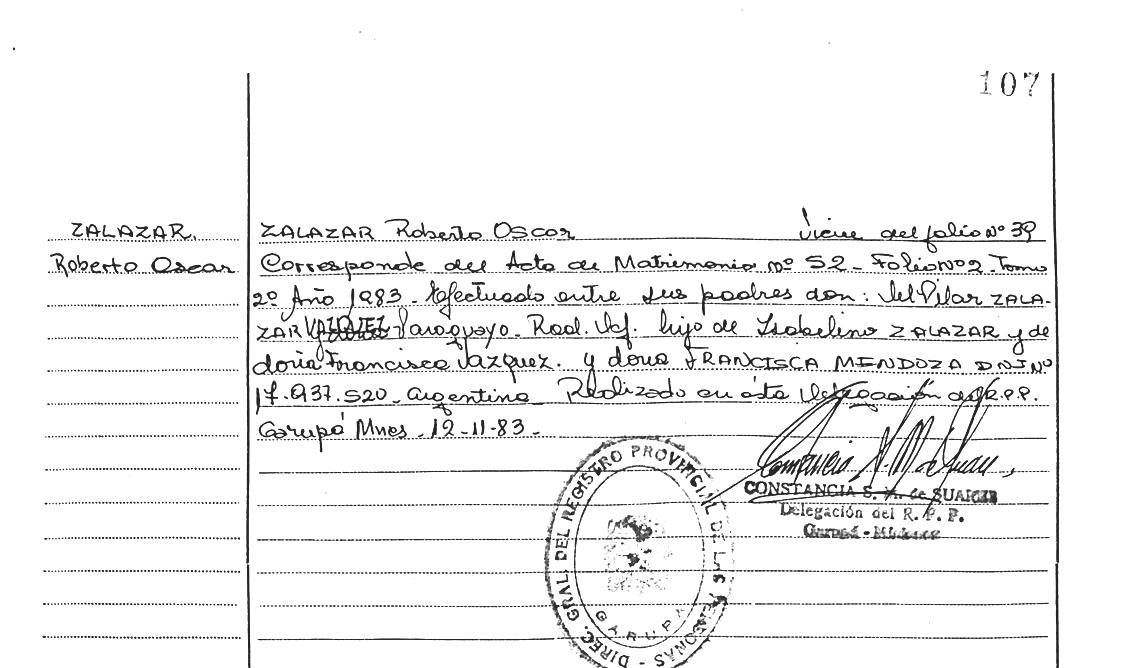 107
ZALAZAR.
Roberto Oscar
ZALAZAR Roberto Oscar Viene del folio Nº 39
Corresponde del Acta de Matrimonio nº 52 - Folio Nº 2 - Tomo
2º Año 1983 - Efectuado entre sus padres don: del Pilar ZALA-
ZAR VAZQUEZ - Paraguayo - Rad. Def. hijo de Isabelino ZALAZAR y de
doña Francisca Vazquez. y doña FRANCISCA MENDOZA DNI Nº
17.937.520 - Argentina - Realizado en ésta Delegación del R.P.P.
Garupá Mnes - 12-11-83 -
CONSTANCIA S. de SUAREZ
Delegación del R. P. P.
Garupá - Misiones
DIREC. GRAL. DEL REGISTRO PROVINCIAL DE LAS PERSONAS -
GARUPA